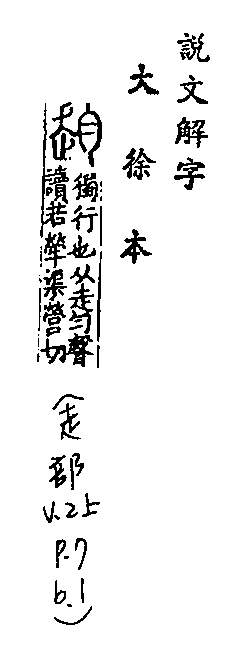 說文解字
大徐本
赹
獨行也从走勻聲
讀若煢渠營切
(走部v.2上p.7b.1)